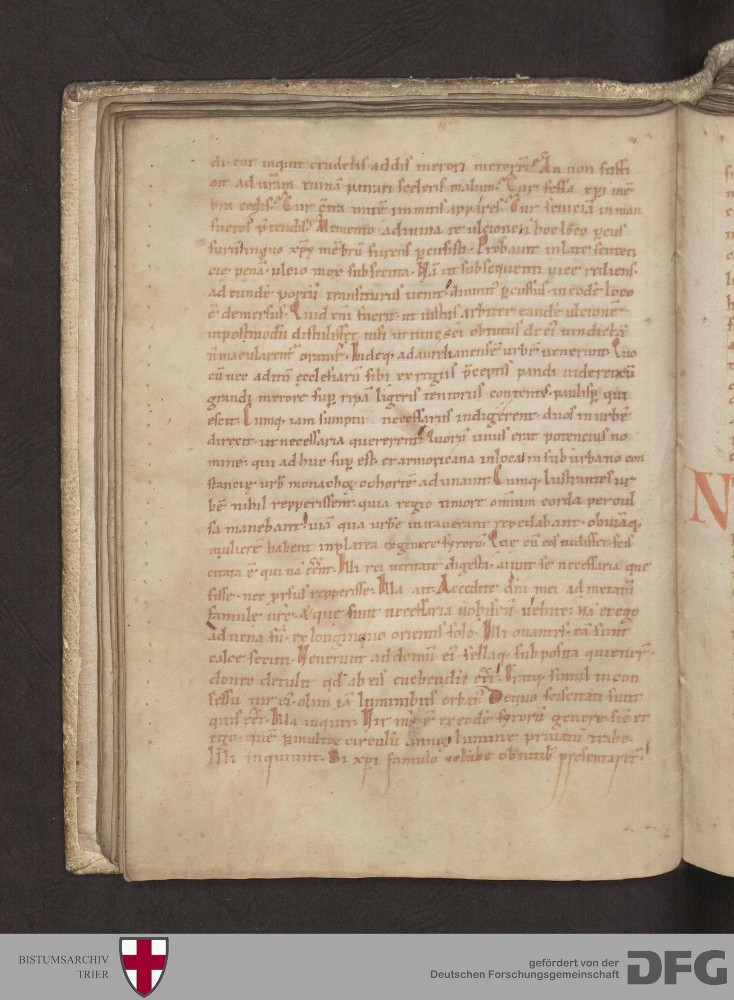 di. cur inquit crudelis addis merori merorē? An non suffi
cit ad urām ruinā patrari sceleris malum? Cur fessa xpi mē
bra cedis? Cur cōtra mitē inmitis appares? Cur seuiciā in man
suetos p̄tendis? Memento a diuina te ulcione in hoc loco
mēbrū furens percussisti. Probauit in late
pena. ulcio mox subsecuta. Nā ut subsequenti uice rediens.
ad eundē portū transiturus uenit. diuinit' percussus. in eodē loco
ē demersus. Quid eni fuerit. ut iustus arbiter eandē ulcionē
inpostmodū distulisset nisi ut tunc sci obtutus de ei' uindicta
n̄ macularent' Indeq. ad aurelianensē urbē uenerunt. Quo
cū nec aditū ęcclesiarū sibi ex regiis p̄ceptis pandi
grandi merore sup ripā ligeris tentoriis contentus. paulisp qui
escit. Cumq. iam sumptu necessarius indigerent. duos in urbē
direxit ut necessaria quererent. Quorū unus erat potencius no
mine. qui adhuc sup est. et armoricana in local in suburbano con
stancię urb' monachoꝝ cohortē adunauit. Cumq. lustrantes ur
bē nihil repperissent. quia regio timore omnium corda percul
sa manebant. uiā qua urbē intrauerant repedabant. obuiāq.
mulierē habent in platea ex genere syrorū. Que cū eos uidisset. scis
citata ē qui nā eēnt. Illi rei ueritate digesta. aiunt se necessaria que
sisse. nec prsus repperisse. Illa ait. Accedite dni mei ad metatū
famulę urę. & que sunt necessaria uobiscū uehite. nā et ego
aduena sū. ex longinquo orientis solo. Illi ouantes. eā sunt
calce secuti. Venerunt ad domū ei'. sellaq. subposita quieuer̄.
donec detulit qd ab eis euehendū eēt. Eratq. simul in con
sessu uir ei' olim iā luminibus orbat'. De quo sciscitati sunt
quis eēt. Illa inquit. Vir ms ē ex eodē syrorū genere sic et
ego. quē p multoꝝ circulū annoꝝ lumine priuatū trabe.
Illi inquiunt. Si xpi famulo columbe obtutib' presentaret.
N
BISTUMSARCHIV
TRIER
gefördert von der
Deutschen Forschungsgemeinschaft
DFG